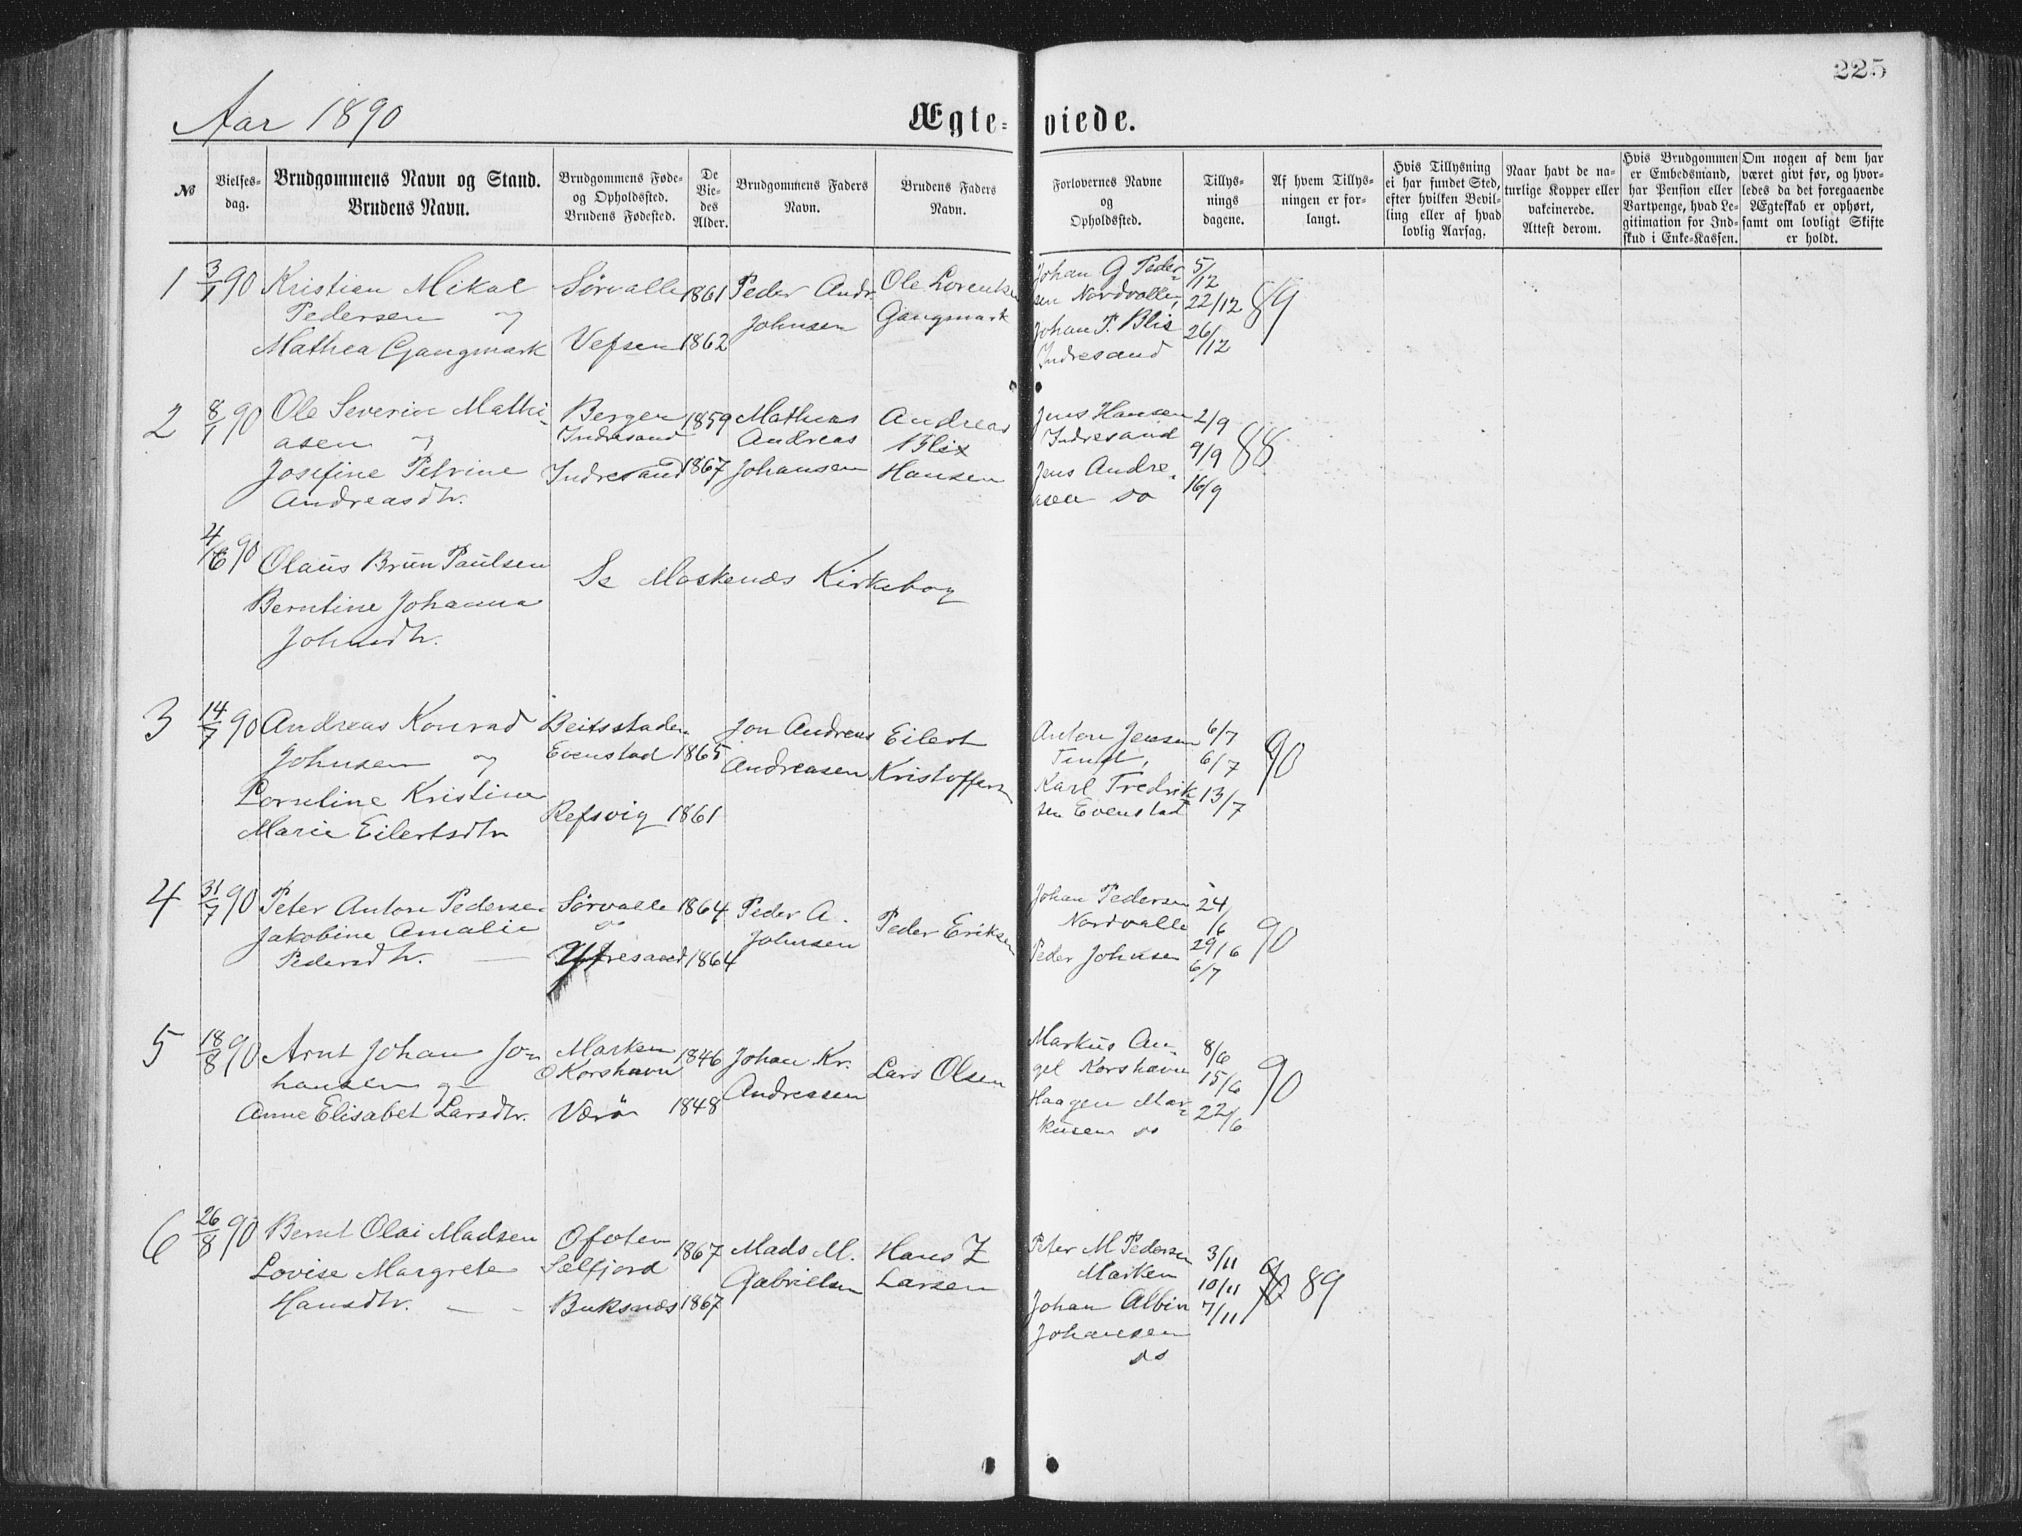 225
Aar 1890
Ægte-
viede.
№
Vielses-
dag.
Brudgommens Navn og Stand.
Brudens Navn.
Brudgommens Føde-
og Opholdssted.
Brudens Fødested.
De
Vie-
des
Alder.
Brudgommens Faders
Navn.
Brudens Faders
Navn.
Forlovernes Navne
og
Opholdssted.
Tillys-
nings
dagene.
Af hvem Tillys-
ningen er for-
langt.
Hvis Tillysning
ei har fundet Sted,
efter hvilken Bevil-
ling eller af hvad
lovlig Aarsag.
Naar havt de na-
turlige Kopper eller
vakcinerede.
Attest derom.
Hvis Brudgommen
er Embedsmand,
har Pension eller
Vartpenge, hvad Le-
gitimation for Ind-
skud i Enke-Kassen.
Om nogen af dem har
været givt før, og hvor-
ledes da det foregaaende
Ægteskab er ophørt,
samt om lovligt Skifte
er holdt.
1 3/1 90 Kristian Mikal
Pedersen og
Mathea Gangmark
Sørvalle 1861
Vefsen 1862
Peder Andr.
Johnsen
Ole Lorentsen
Gangmark
Johan G Peder=
sen Nordvalle,
Johan P. Blix
Indresand
5/12
22/12 89
26/12
2 8/1 90 Ole Severin Mathi-
asen og
Josefine Petrine
Andreasdtr.
Bergen 1859
Indresand
Indresand 1867
Mathias
Andreas
Johansen
Andreas
Blix
Hansen
Jens Hansen
Indresand
Jens Andre-
asen do
2/9
9/9 88
16/9
4/6 90 Olaus Brun Paulsen
Berntine Johanna
Johnsdtr.
Se Moskenæs Kirkebog
3 14/7 90 Andreas Konrad
Johnsen og
Lorntine Kristine
Marie Eilertsdtr
Beitsstaden
Evenstad 1865
Refsvig 1861
Jon Andreas
Andreasen
Eilert
Kristoffersen
Anton Jensen
Tind,
Karl Fredrik
sen Evenstad
6/7
6/7 90
13/7
4 31/7 90 Peter Anton Pedersen
Jakobine Amalie
Pedersdtr. —
Sørvalle 1864
Yttresand 1864
Peder A.
Johnsen
Peder Eriksen
Johan Pedersen
Nordvalle
Peder Johnsen
24/6
29/6 90
6/7
5 18/8 90 Arnt Johan Jo-
hansen og
Anne Elisabet Larsdtr.
Marken 1846
Korshavn
Værø 1848
Johan Kr.
Andreasen
Lars Olsen
Markus An-
gel Korshavn
Haagen Mar=
kusen do
8/6
15/6 90
22/6
6 26/8 90 Bernt Olai Madsen
Lovise Margrete
Hansdtr. — -
Ofoten 1867
Selfjord
Buksnæs 1867
Mads M.
Gabrielsen
Hans Z
Larsen
Peter M Pedersen
Marken
Johan Albin
Johansen
do
3/11
10/11 90 89
7/11